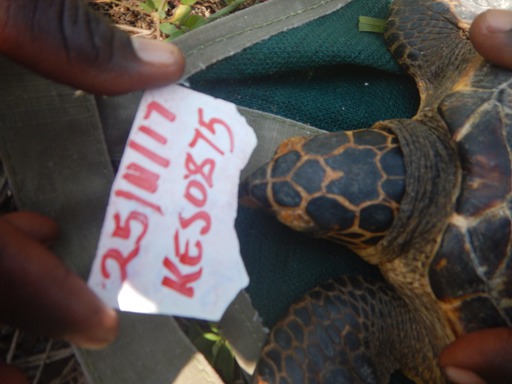 25/11/17
KES0875